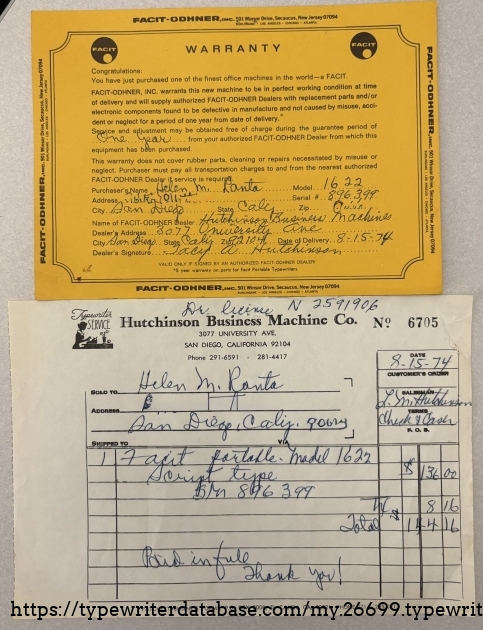 FACIT-ODHNER, INC. 501 Winsor Drive, Secaucus, New Jersey 07094
FACIT
WARRANTY
FACIT
Congratulations:
You have just purchased one of the finest office machines in the world—a FACIT.
FACIT-ODHNER, INC. warrants this new machine to be in perfect working condition at time
of delivery and will supply authorized FACIT-ODHNER Dealers with replacement parts and/or
electronic components found to be defective in manufacture and not caused by misuse, acci-
dent or neglect for a period of one year from date of delivery.*
Service and adjustment may be obtained free of charge during the guarantee period of
One Year from your authorized FACIT-ODHNER Dealer from which this
equipment has been purchased.
This warranty does not cover rubber parts, cleaning or repairs necessitated by misuse or
neglect. Purchaser must pay all transportation charges to and from the nearest authorized
FACIT-ODHNER Dealer if service is required.
Purchaser's Name Helen M. Ranta Model 1622
Address Serial # 896399
City San Diego State Calif Zip
Name of FACIT-ODHNER Dealer Hutchinson Business Machines
Dealer's Address 3077 University Ave
City San Diego State Calif Zip 92104 Date of Delivery 8-15-74
Dealer's Signature Hutchinson
VALID ONLY IF SIGNED BY AN AUTHORIZED FACIT-ODHNER DEALER!
*5 year warranty on parts for Facit Portable Typewriters
FACIT-ODHNER, INC. 501 Winsor Drive, Secaucus, New Jersey 07094
Dr. license N 2591906
Typewriter SERVICE
Hutchinson Business Machine Co. No 6705
3077 UNIVERSITY AVE.
SAN DIEGO, CALIFORNIA 92104
Phone 291-6591 - 281-4417
DATE
8-15-74
CUSTOMER'S ORDER
SOLD TO Helen M. Ranta
SALESMAN
L. M. Hutchinson
ADDRESS
TERMS
Check & Cash
San Diego, Calif.
F. O. B.
SHIPPED TO VIA
1 Facit portable - Model 1622 $ 136 00
Script type
S/N 896399
Tx 8 16
Total 144 16
Paid in full
Thank You!
https://typewriterdatabase.com/my.26699.typewrit